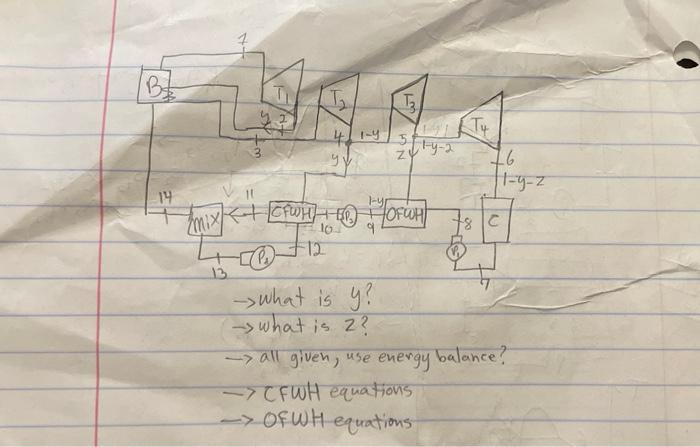 7
B
T1
T2
T3
T4
y 2
3
4
1-y
5
1-y-z
y
z
6
1-y-z
14
mix
11
CFWH
10
P2
1-y
9
OFWH
8
C
P1
7
12
P3
13
→ what is y?
→ what is z?
→ all given, use energy balance?
→ CFWH equations
→ OFWH equations